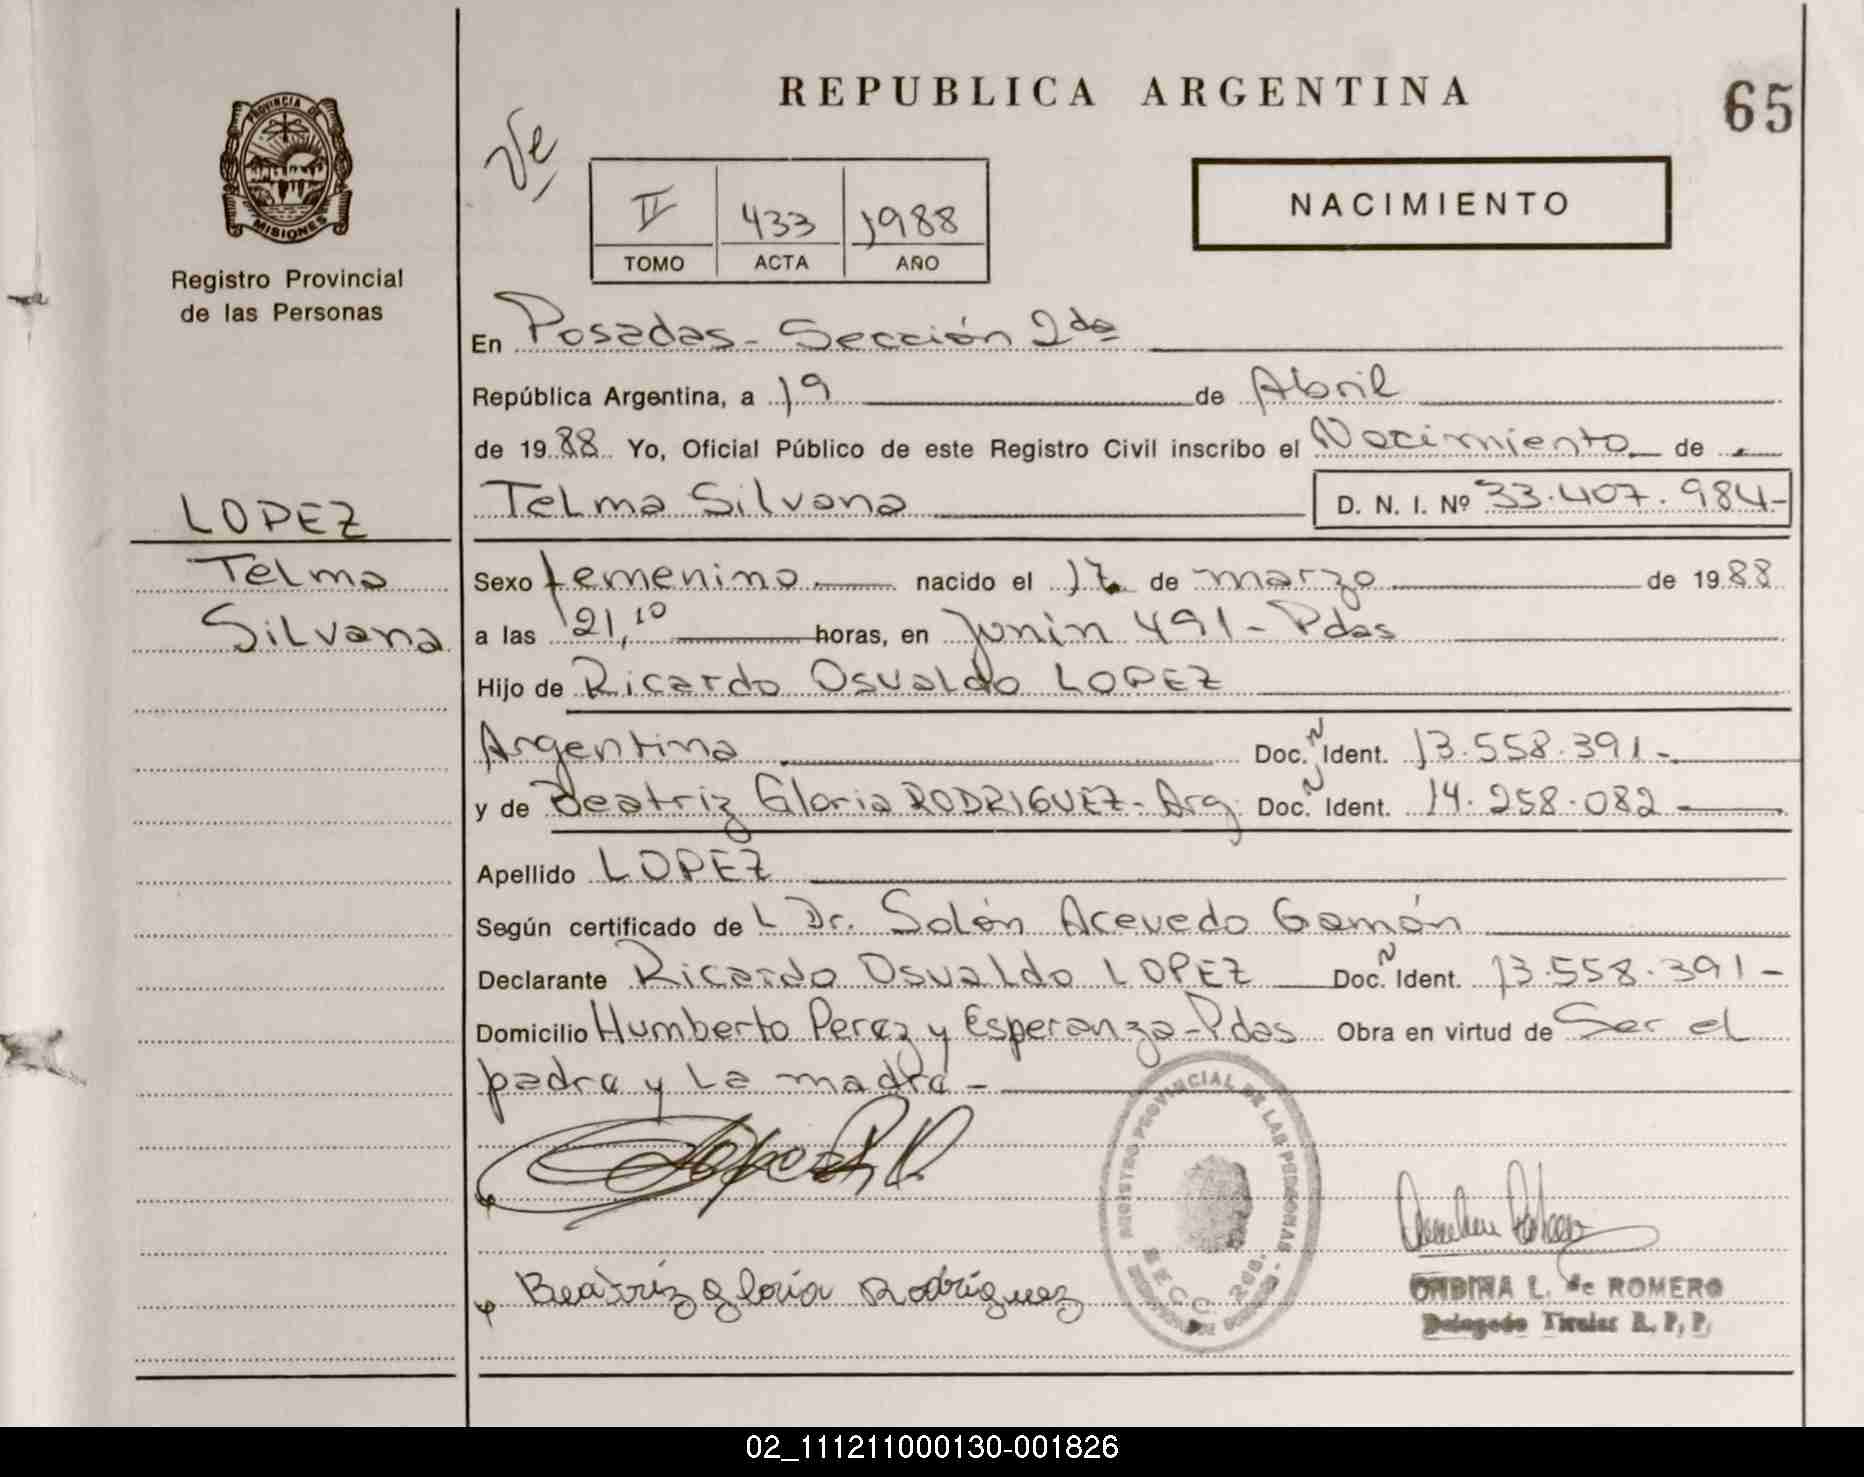 REPUBLICA ARGENTINA
65
PROVINCIA DE
MISIONES
Registro Provincial
de las Personas
II 433 1988
TOMO ACTA AÑO
NACIMIENTO
En Posadas - Sección 2da
República Argentina, a 19 de Abril
de 1988 Yo, Oficial Público de este Registro Civil inscribo el Nacimiento de
Telma Silvana D. N. I. Nº 33.407.984-
LOPEZ
Telma
Silvana
Sexo femenino nacido el 17 de marzo de 1988
a las 21,10 horas, en Junin 491 - Pdas
Hijo de Ricardo Osvaldo LOPEZ
Argentina Doc. N Ident. 13.558.391-
y de Beatriz Gloria RODRIGUEZ - Arg. Doc. N Ident. 14.258.082-
Apellido LOPEZ
Según certificado de L Dr. Solón Acevedo Gamón
Declarante Ricardo Osvaldo LOPEZ Doc. N Ident. 13.558.391-
Domicilio Humberto Perez y Esperanza - Pdas Obra en virtud de Ser el
padre y La madre -
REGISTRO PROVINCIAL DE LAS PERSONAS
SECC. 2da.
Beatriz gloria Rodríguez
ONDINA L. de ROMERO
Delegado Titular R. P. P.
02_111211000130-001826